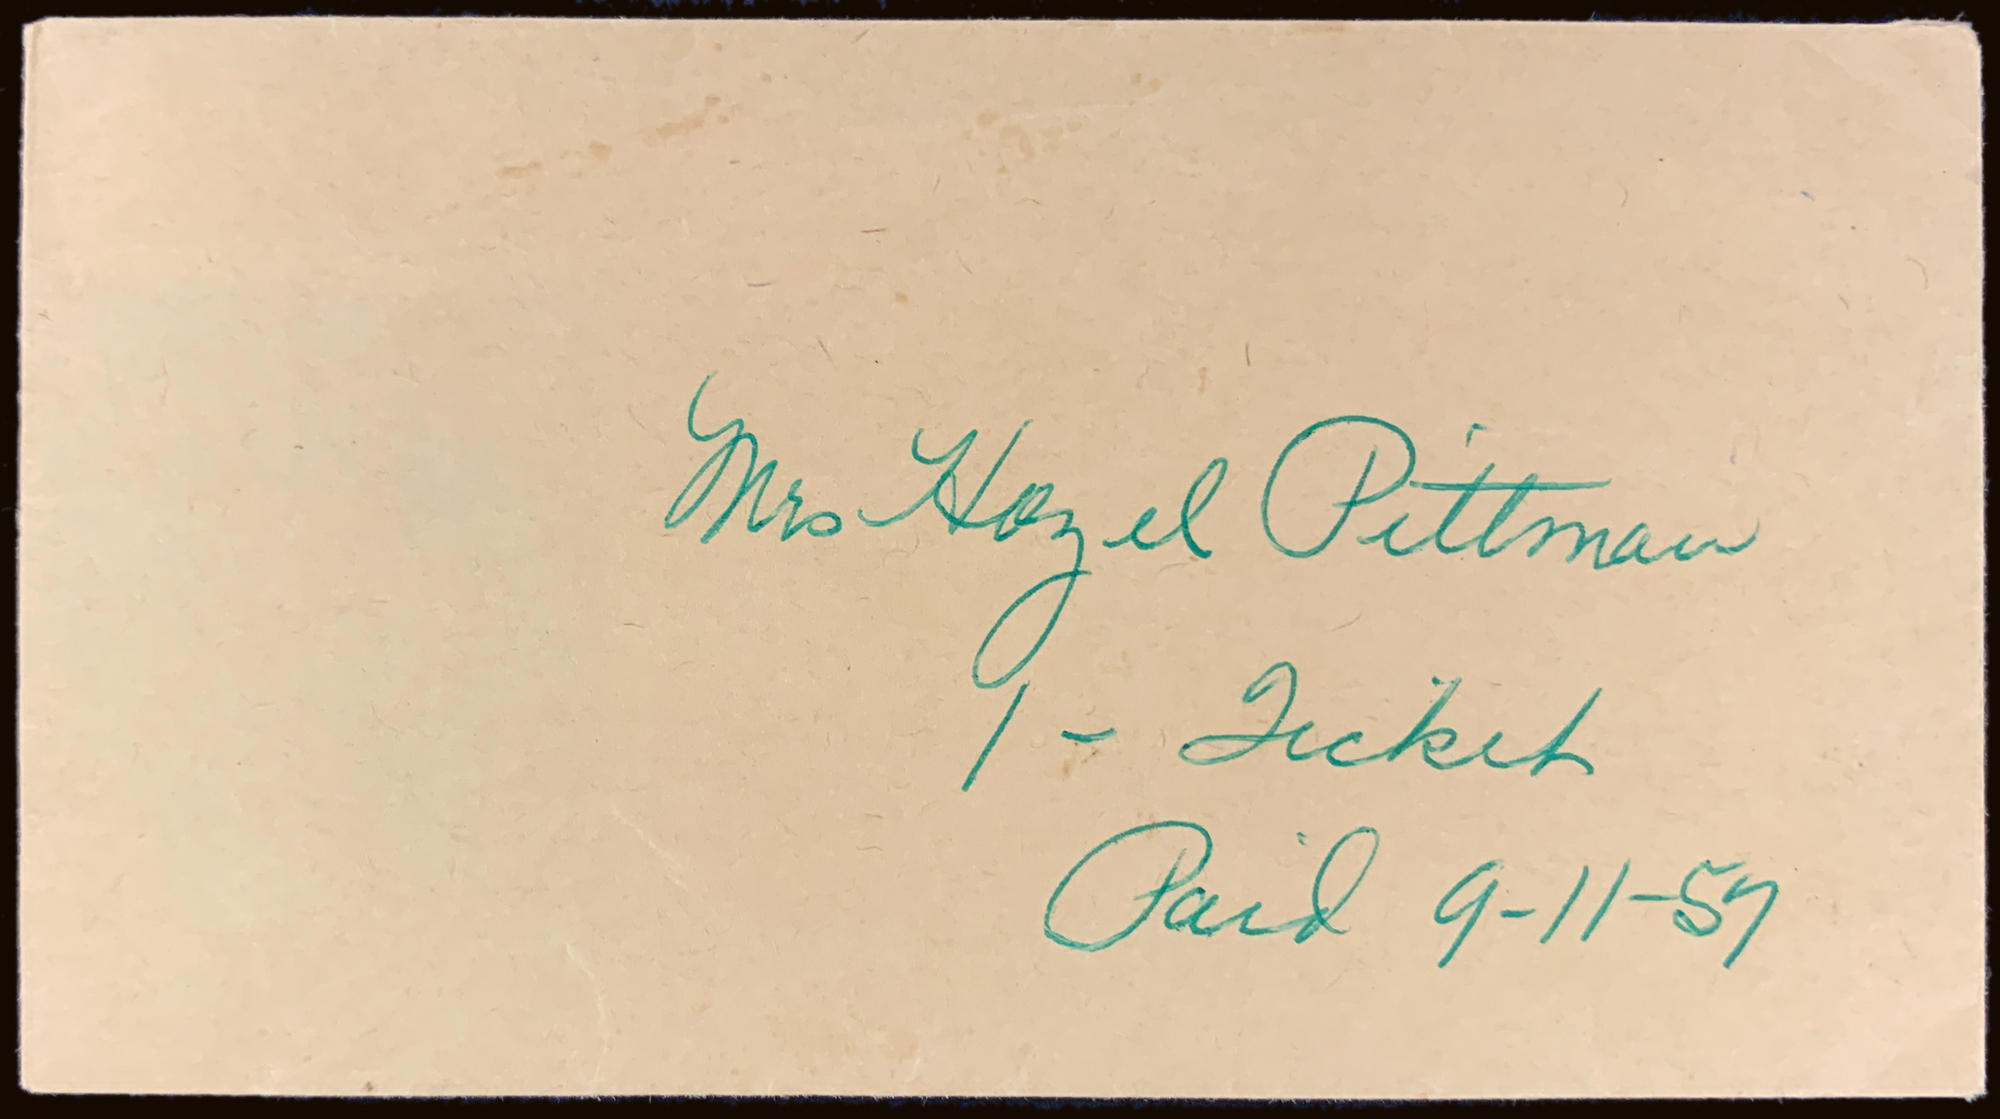 Mrs Hazel Pittman
1 - Ticket
Paid 9-11-57